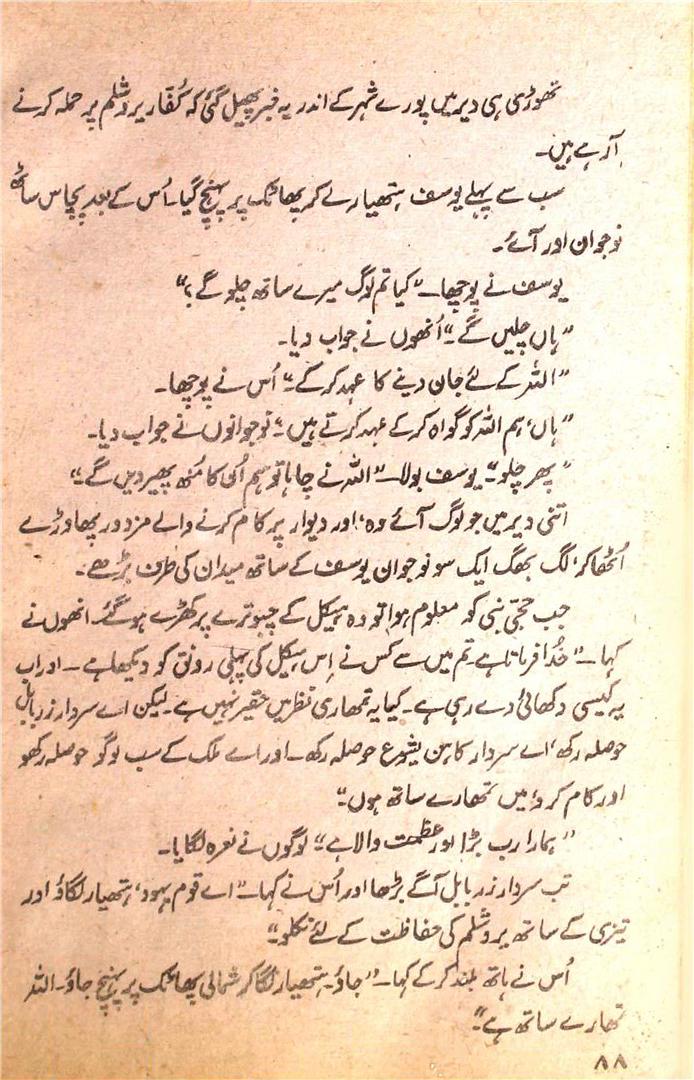 تھوڑی ہی دیر میں پورے شہر کے اندر یہ خبر پھیل گئی کہ کُفّار یروشلم پر حملہ کرنے
آرہے ہیں۔
سب سے پہلے یوسف ہتھیار لے کر پھاٹک پر پہنچ گیا۔ اُس کے بعد پچاس ساٹھ
نوجوان اور آئے۔
یوسف نے پوچھا۔ "کیا تم لوگ میرے ساتھ چلو گے؟"
"ہاں چلیں گے۔" اُنھوں نے جواب دیا۔
"اللہ کے لئے جان دینے کا عہد کرو گے۔" اُس نے پوچھا۔
"ہاں، ہم اللہ کو گواہ کر کے عہد کرتے ہیں۔" نوجوانوں نے جواب دیا۔
"پھر چلو۔" یوسف بولا۔ "اللہ نے چاہا تو ہم اُن کا مُنھ پھیر دیں گے۔"
اتنی دیر میں جو لوگ آئے وہ، اور دیوار پر کام کرنے والے مزدور پھاوڑے
اُٹھا کر، لگ بھگ ایک سو نوجوان یوسف کے ساتھ میدان کی طرف بڑھے۔
جب حجّی نبی کو معلوم ہوا تو وہ ہیکل کے چبوترے پر کھڑے ہو گئے۔ انھوں نے
کہا۔ "خُدا فرماتا ہے۔ تم میں سے کس نے اِس ہیکل کی پہلی رونق کو دیکھا ہے۔ اور اب
یہ کیسی دکھائی دے رہی ہے۔ کیا یہ تمھاری نظر میں حقیر نہیں ہے۔ لیکن اے سردار زربابل
حوصلہ رکھ، اے سردار کاہن یشوع حوصلہ رکھ۔ اور اے ملک کے سب لوگو حوصلہ رکھو
اور کام کرو، میں تمھارے ساتھ ہوں۔"
"ہمارا رب بڑا اور عظمت والا ہے۔" لوگوں نے نعرہ لگایا۔
تب سردار زربابل آگے بڑھا اور اُس نے کہا۔ "اے قوم یہود، ہتھیار لگاؤ اور
تیزی کے ساتھ یروشلم کی حفاظت کے لئے نکلو۔"
اُس نے ہاتھ بلند کر کے کہا۔ "جاؤ۔ ہتھیار لگا کر شمالی پھاٹک پر پہنچ جاؤ۔ اللہ
تمھارے ساتھ ہے۔"
۸۸